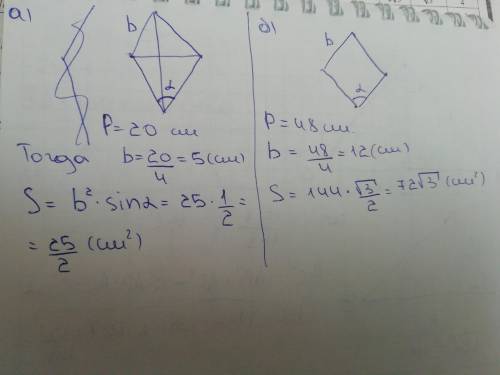 а)
b
α
P = 20 см
Тогда b = 20/4 = 5 (см)
S = b² · sinα = 25 · 1/2 =
= 25/2 (см²)
б)
b
α
P = 48 см
b = 48/4 = 12 (см)
S = 144 · √3/2 = 72√3 (см²)